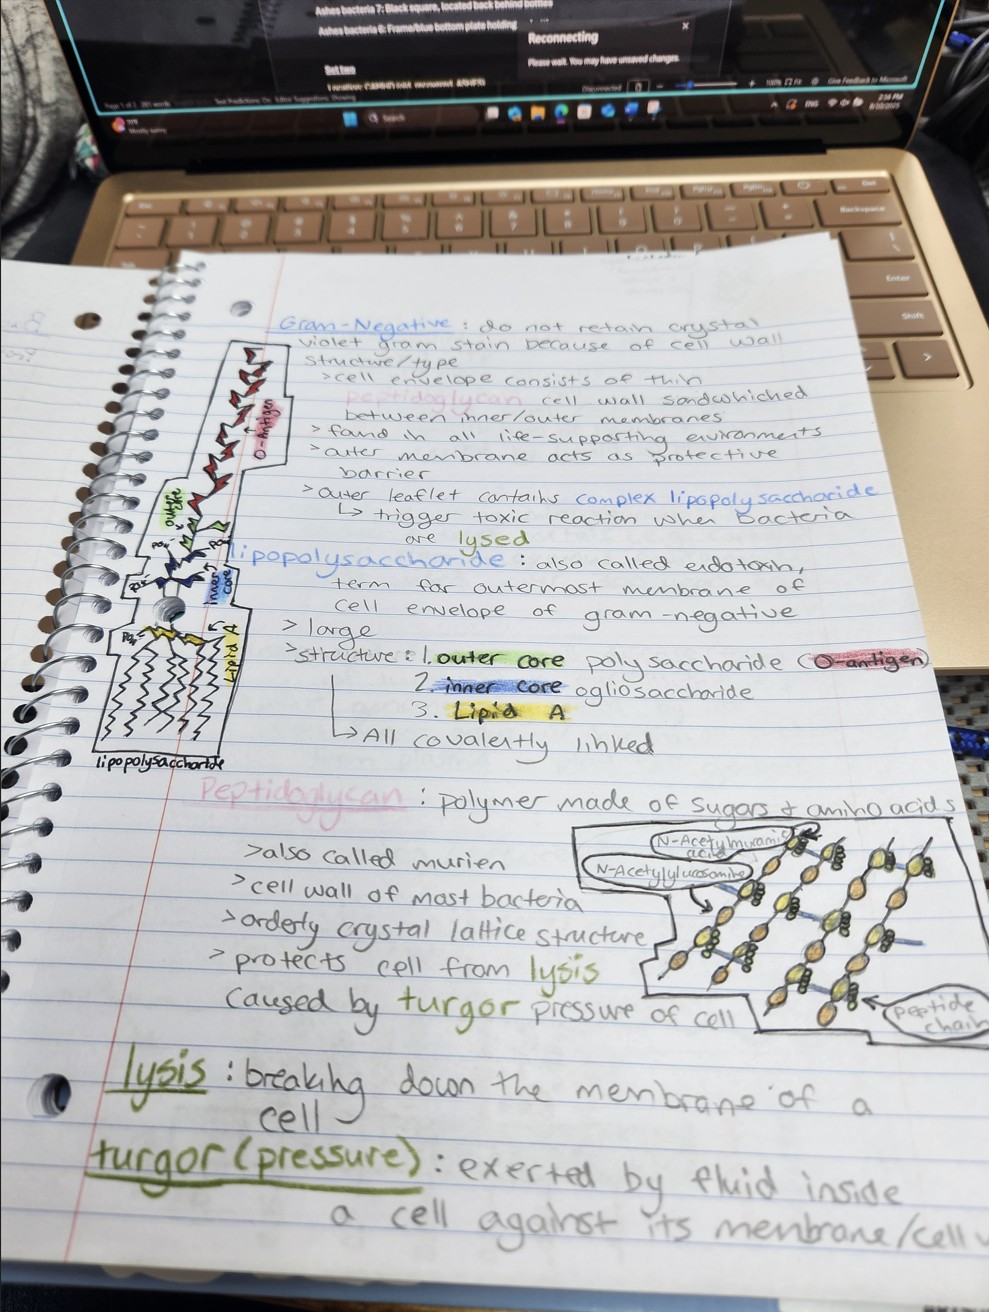 Ashes bacteria 7: Black square, located back behind bottles
Ashes bacteria 6: Frame/blue bottom plate holding
Reconnecting
Please wait. You may have unsaved changes.
Set two
Disconnected
100%
Give Feedback to Microsoft
Search
ENG
2:56 PM
Backspace
Enter
Shift
Gram-Negative : do not retain crystal
violet gram stain because of cell wall
structure/type
>cell envelope consists of thin
peptidoglycan cell wall sandwhiched
between inner/outer membranes
> found in all life-supporting environments
> outer membrane acts as protective
barrier
> outer leaflet contains complex lipopolysaccharide
↳ trigger toxic reaction when bacteria
are lysed
lipopolysaccharide : also called endotoxin,
term for outermost membrane of
cell envelope of gram-negative
> large
>structure: 1. outer core polysaccharide (O-antigen)
2. inner core ogliosaccharide
3. Lipid A
↳ All covalently linked
O-Antigen
outer core
PO₄
PO₄
PO₄
inner core
PO₄
Lipid A
lipopolysaccharide
Peptidoglycan : polymer made of sugars + amino acids
>also called murien
>cell wall of most bacteria
>orderly crystal lattice structure
> protects cell from lysis
caused by turgor pressure of cell
N-Acetylmuramic
acid
N-Acetylglucosamine
Peptide
chain
lysis : breaking down the membrane of a
cell
turgor (pressure) : exerted by fluid inside
a cell against its menbrane/cell